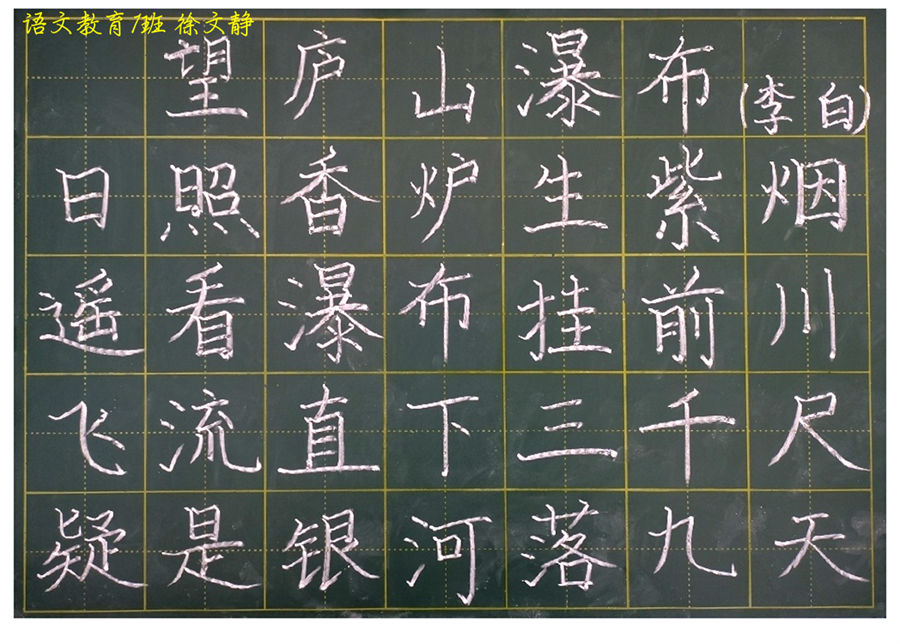 语文教育1班 徐文静
望庐山瀑布(李白)
日照香炉生紫烟
遥看瀑布挂前川
飞流直下三千尺
疑是银河落九天